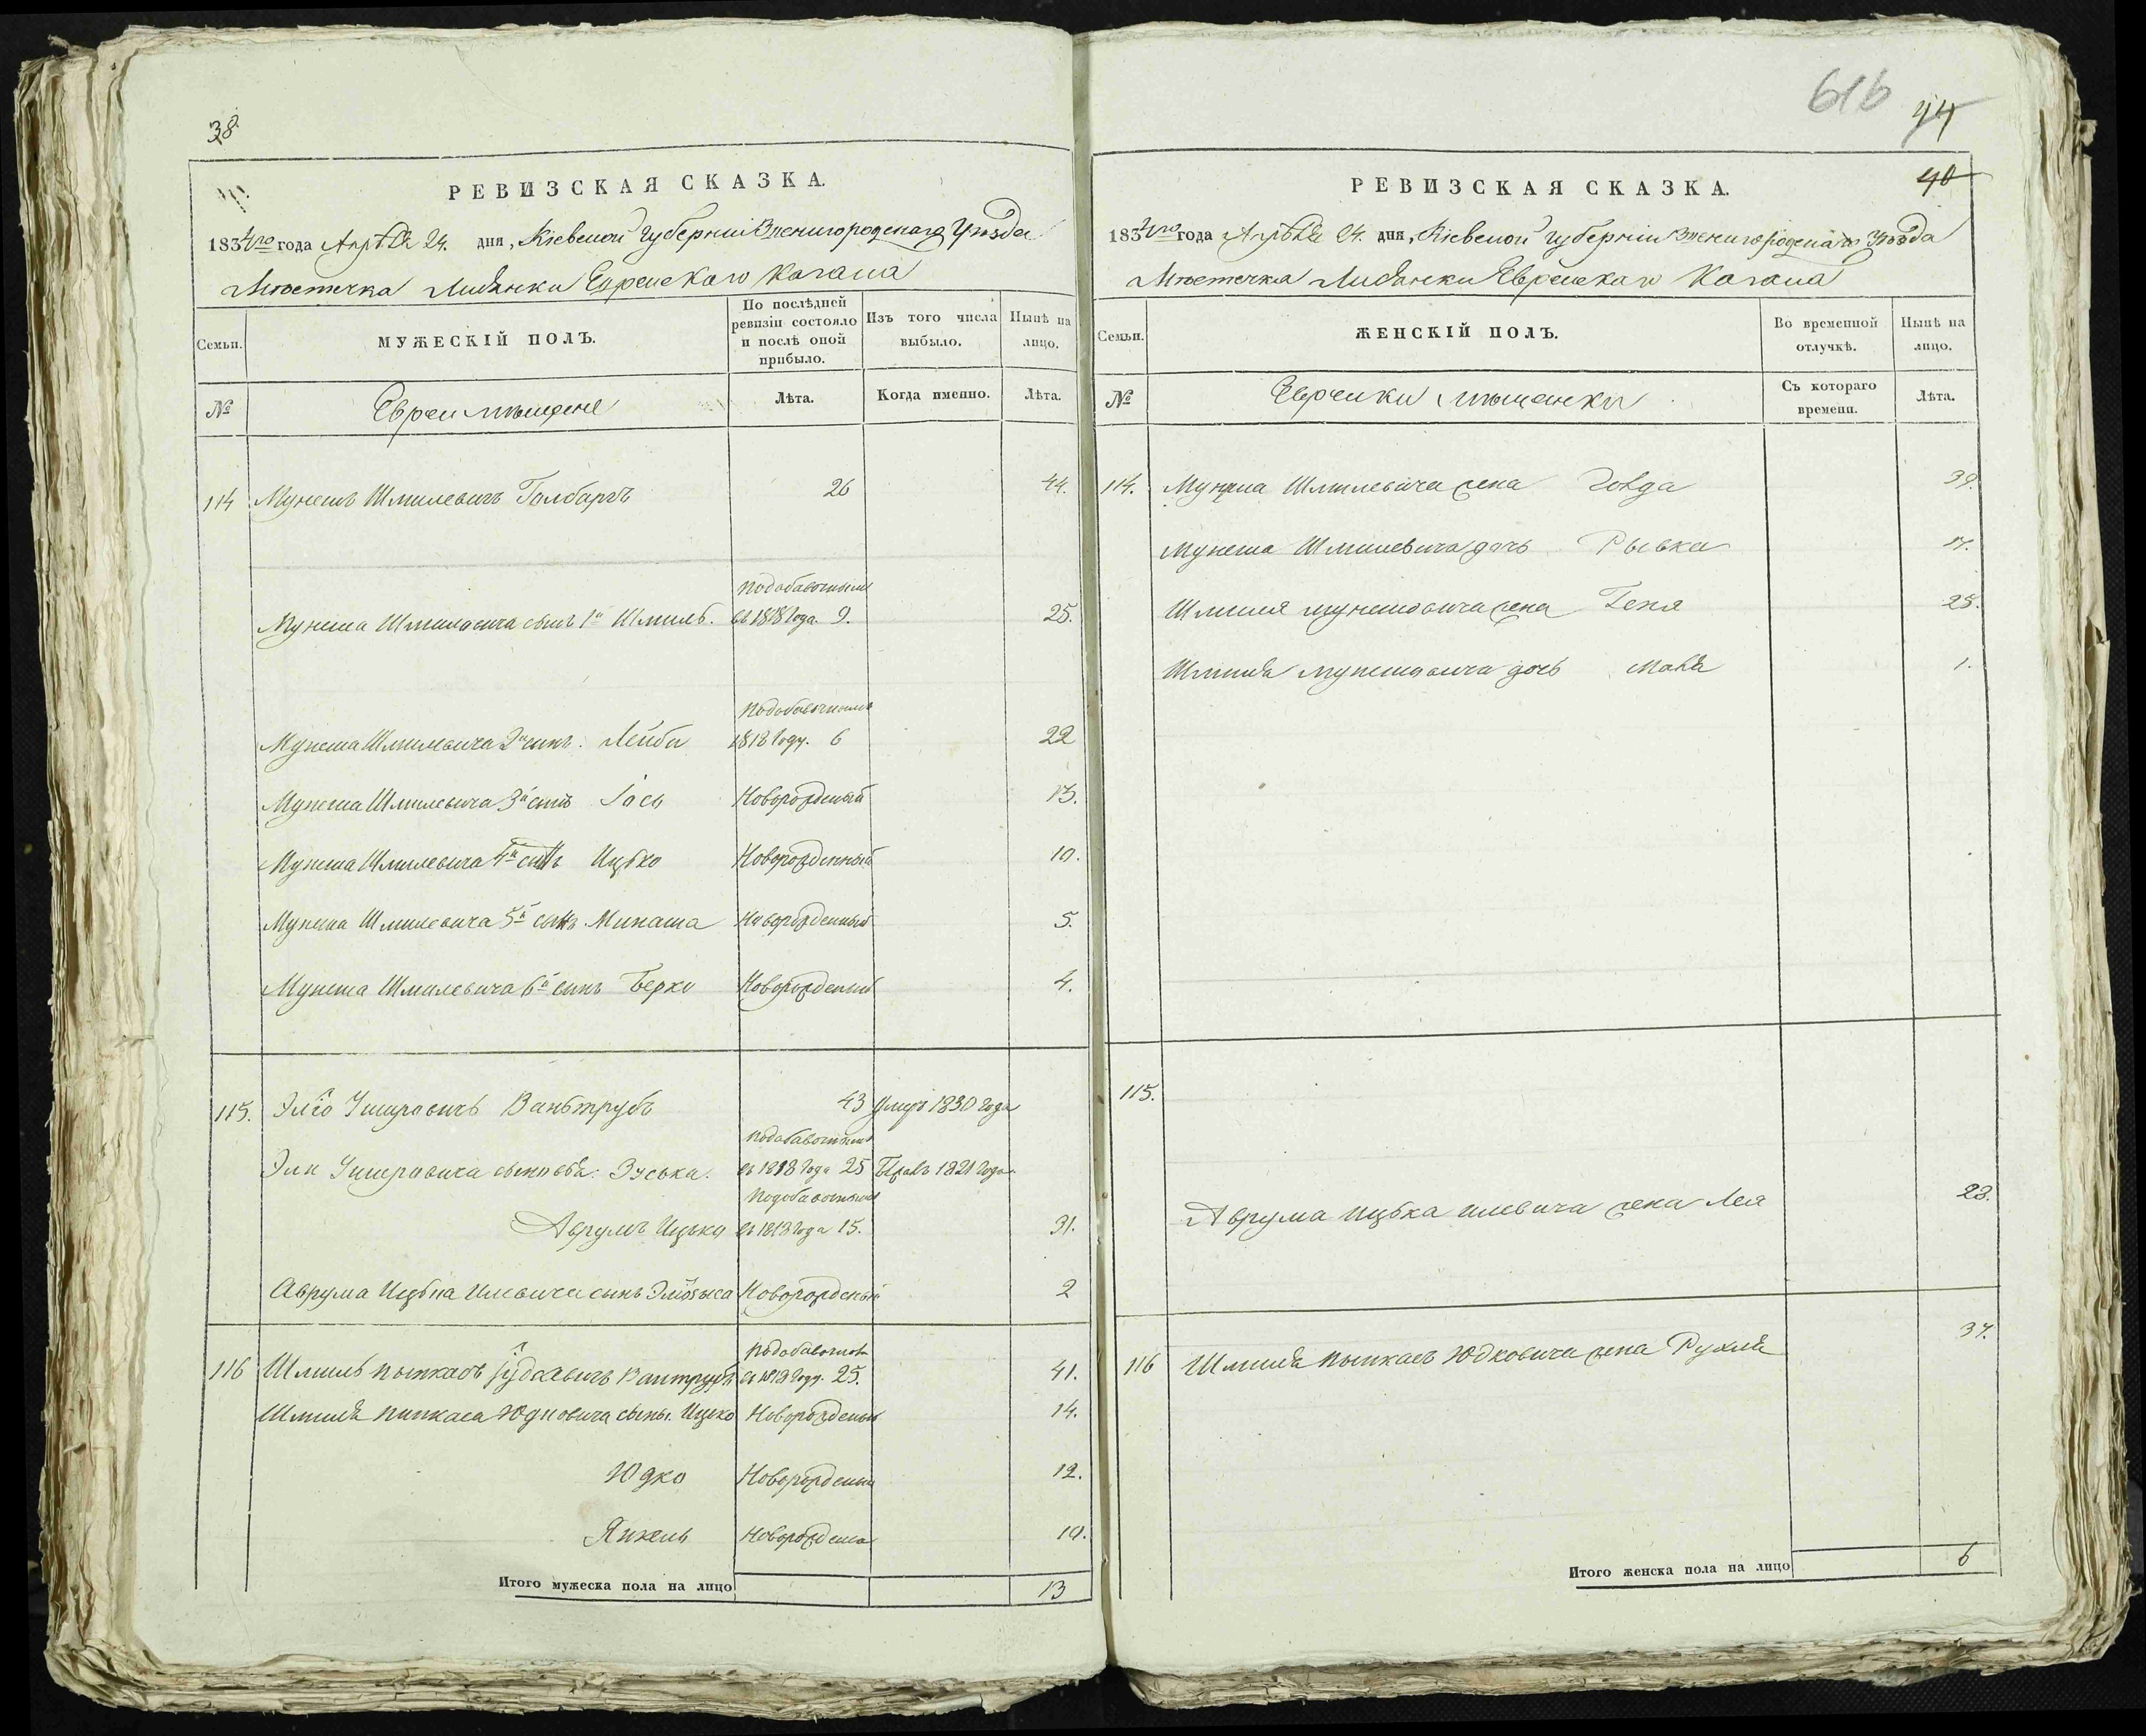 38
РЕВИЗСКАЯ СКАЗКА.
1834го года Апрѣля 24. дня, Кіевской Губерніи Звенигородскаго Уѣзда
Мѣстечка Лисянки Еврейскаго Кагала
Семьи.
МУЖЕСКІЙ ПОЛЪ.
По послѣдней ревизіи состояло и послѣ оной прибыло.
Изъ того числа выбыло.
Нынѣ на лицо.
№
Евреи мѣщане
Лѣта.
Когда именно.
Лѣта.
114 Мунешъ Шмилевичъ 26 44.
Подобавочнымъ
Мунеша Шмилевича сынъ 1й Шмиль. въ 1818 года. 9. 25.
Подобавочнымъ
Мунеша Шмилевича 2й сынъ. Лейба 1818 году. 6 22
Мунеша Шмилевича 3й сынъ Іось Новорожденный 13.
Мунеша Шмилевича 4й сынъ Ицько Новорожденный 10.
Мунеша Шмилевича 5й сынъ Минаша Новорожденный 5.
Мунеша Шмилевича 6й сынъ Берко Новорожденный 4.
115. Эліо Ушеровичъ Ванътрубъ 43 умеръ 1830 года
Подобавочнымъ
Эли Ушеровича сыновья: Зуська. въ 1818 года 25 1821 года.
Подобавочнымъ
Аврумъ Ицько въ 1818 года 15. 31.
Аврума Ицька Илевича сынъ Новорожденый 2
Подобавочнымъ
116 Шмиль Пынкасъ Іудковичъ Вантрубъ въ 1818 году. 25. 41.
Шмиля Пинкаса Юдковича сыны. Ицко Новорожденый 14.
Юдко Новорожденый 12.
Янкель Новорожденый 10.
Итого мужеска пола на лицо 13
616
44
40
РЕВИЗСКАЯ СКАЗКА.
1834го года Апрѣля 24. дня, Кіевской Губерніи Звенигородскаго Уѣзда
Мѣстечка Лисянки Еврейскаго Кагала
Семьи.
ЖЕНСКІЙ ПОЛЪ.
Во временной отлучкѣ.
Нынѣ на лицо.
№
Еврейки мѣщанки
Съ котораго времени.
Лѣта.
114. Мунеша Шмилевича жена 39.
Мунеша Шмилевича дочь Рывка
Шмиля Мунешовича жена Геня 25.
Шмиля Мунешовича дочь 1.
115.
Аврума Ицька Илевича жена Лея 23.
116 Шмиля Пынкасъ Юдковича жена Рухля 37.
Итого женска пола на лицо 6